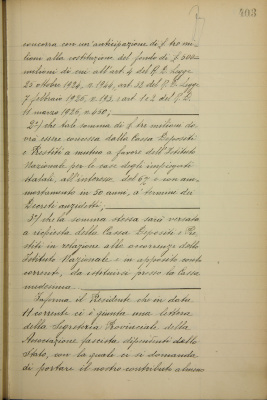 403
concorra con un'anticipazione di £ tre mi-
lioni alla costituzione del fondo di £ 500
milioni di cui all'art. 4 del R. D. Legge
25 ottobre 1924, n. 1944, art. 13 del R. D. Legge
7 febbraio 1926, n. 193 e art. 1 e 2 del R. D.
11 marzo 1926, n. 680;
2°) che tale somma di £ tre milioni do-
vrà essere concessa dalla Cassa Depositi
e Prestiti a mutuo a favore dell'Istituto
Nazionale per le case degli impiegati
statali, all'interesse del 6% e con am-
mortamento in 50 anni, a termine dei
Decreti anzidetti;
3°) che la somma stessa sarà versata
a richiesta della Cassa Depositi e Pre-
stiti in relazione alle occorrenze dello
Istituto Nazionale e in apposito conto
corrente, da istituirsi presso la Cassa
medesima.
Informa il Presidente che in data
11 corrente ci è giunta una lettera
della Segreteria Provinciale della
Associazione fascista dipendenti dello
Stato, con la quale ci si domanda
di portare il nostro contributo almeno